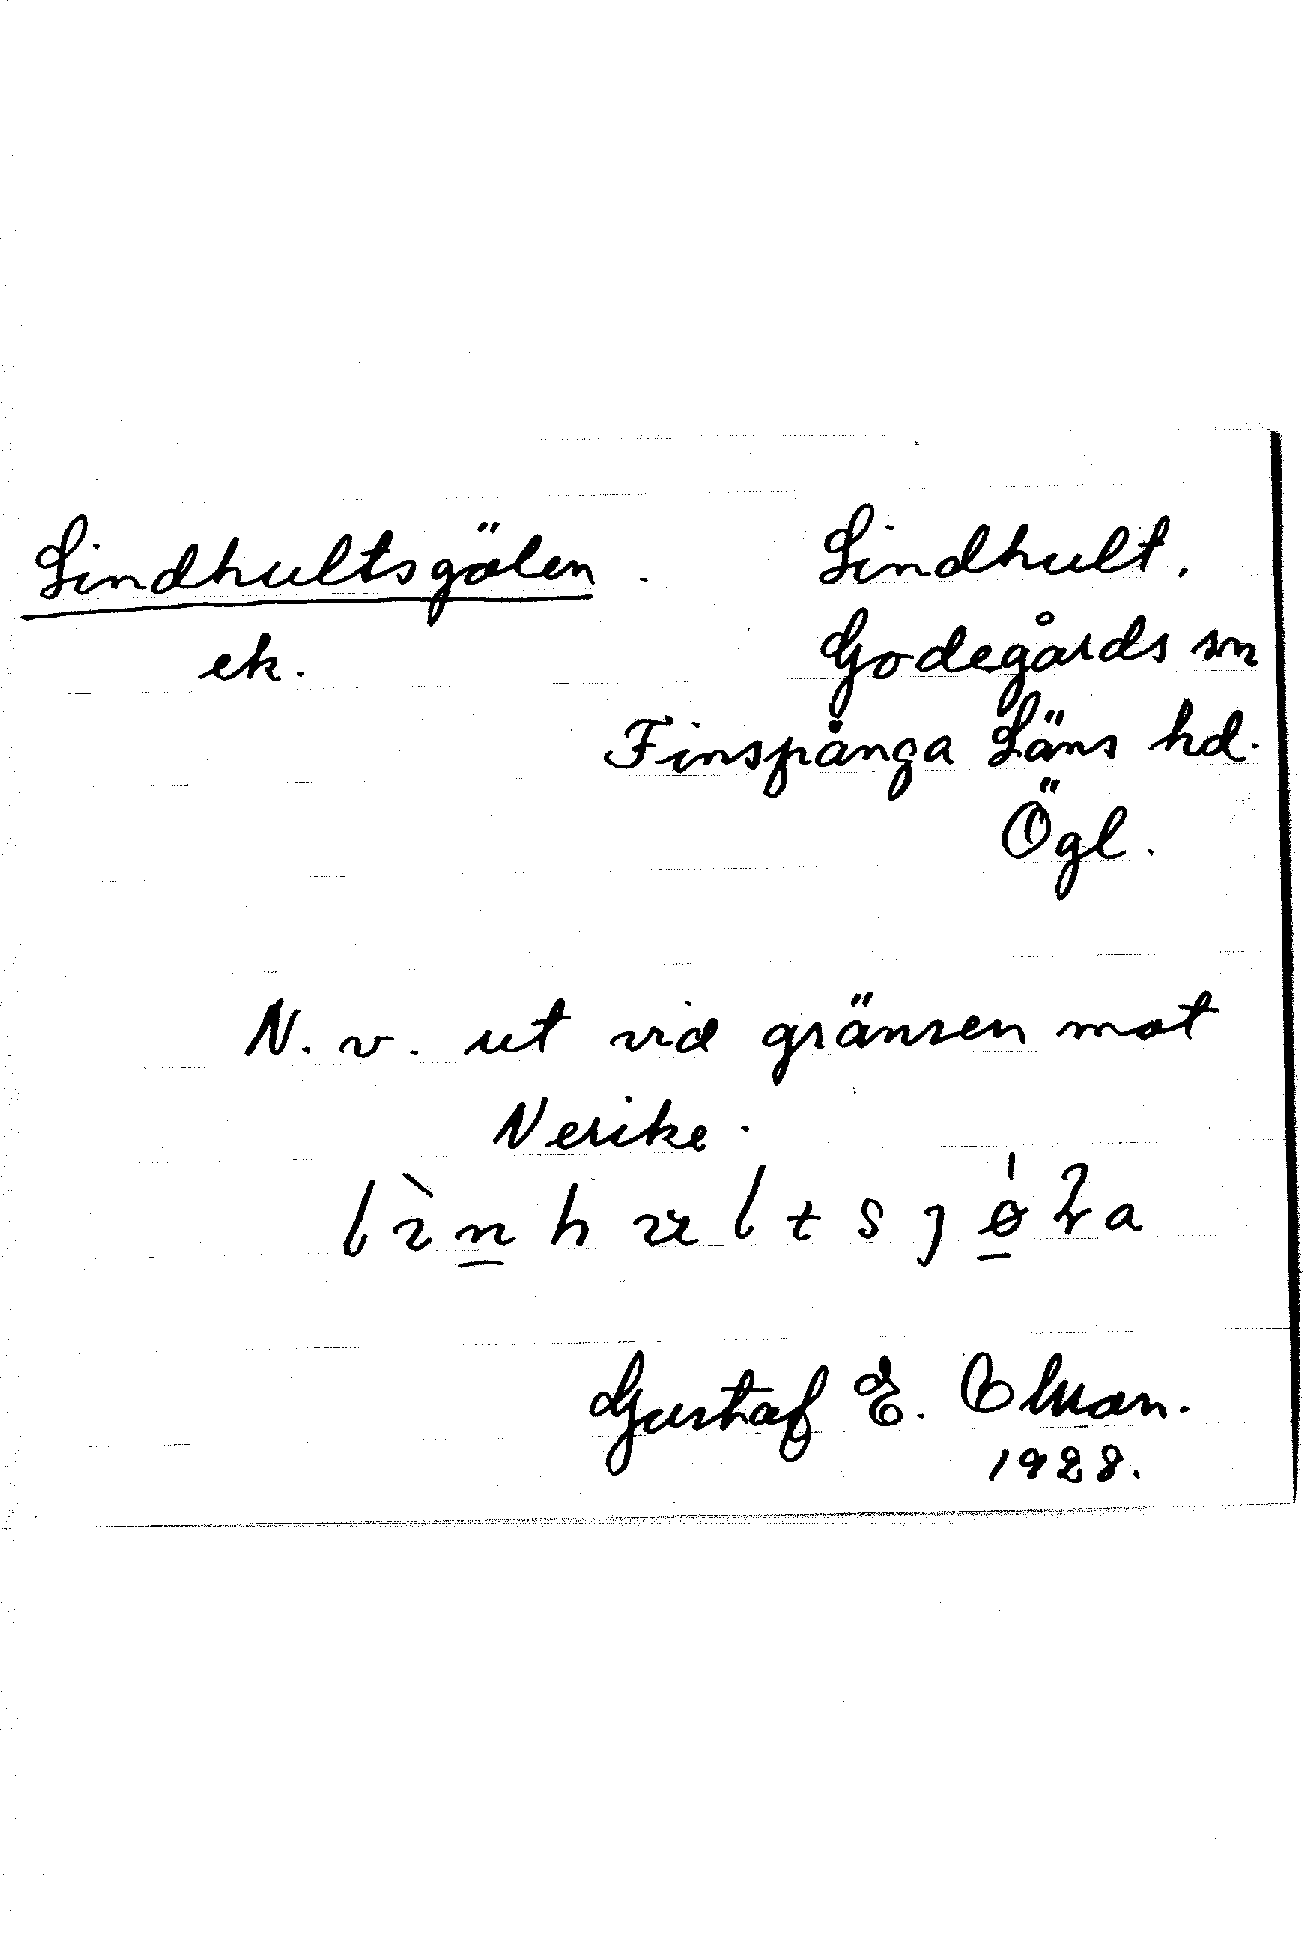 Lindhultsgölen. Lindhult.
ek. Godegårds sn
Finspånga Läns hd.
Ögl.
N. v. ut vid gränsen mot
Nerike.
Gustaf E.
1928.